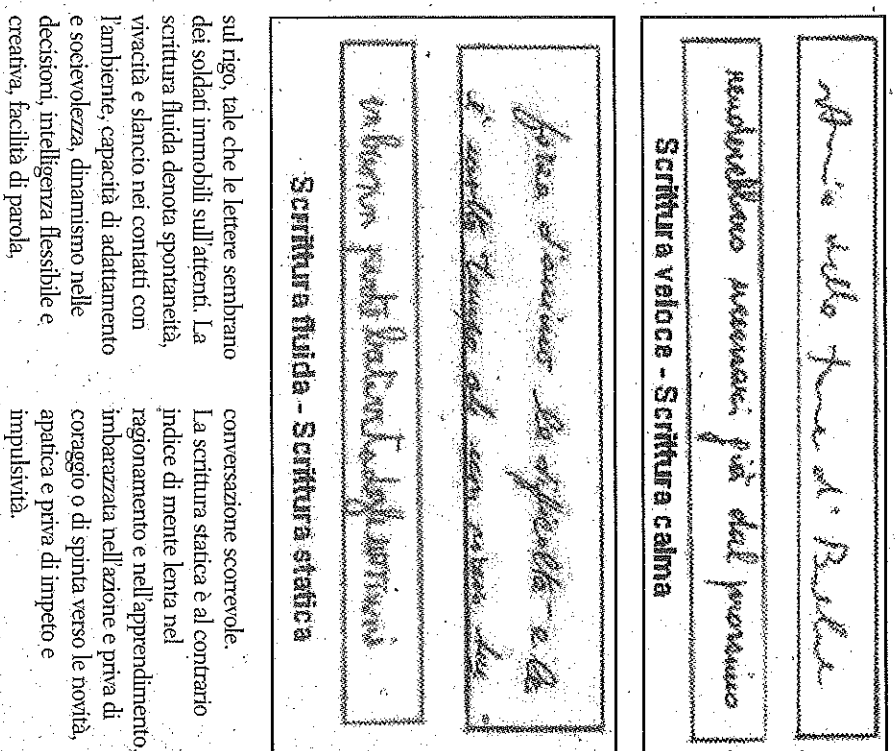 dello
renderebbero necessari già dal prossimo
Scrittura veloce - Scrittura calma
forza d'animo le difficoltà e la
molto tempo
Scrrittura fluida - Scrittura statica
sul rigo, tale che le lettere sembrano
dei soldati immobili sull'attenti. La
scrittura fluida denota spontaneità,
vivacità e slancio nei contatti con
l'ambiente, capacità di adattamento
e socievolezza, dinamismo nelle
decisioni, intelligenza flessibile e
creativa, facilità di parola,
conversazione scorrevole.
La scrittura statica è al contrario
indice di mente lenta nel
ragionamento e nell'apprendimento,
imbarazzata nell'azione e priva di
coraggio o di spinta verso le novità,
apatica e priva di impeto e
impulsività.